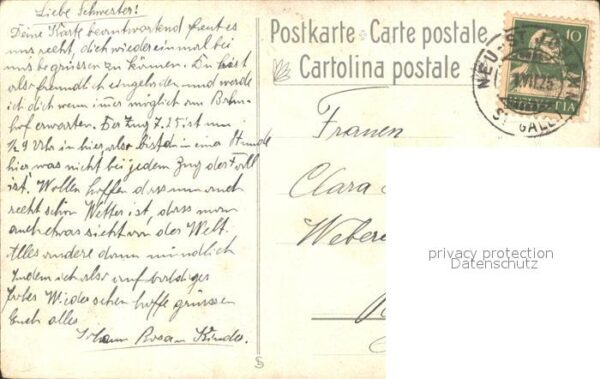 Liebe Schwester!
Deine Karte beantwortend freut es
uns recht, dich wieder einmal bei
uns begrüssen zu können. Du bist
also freundlich eingeladen und werde
ich dich wenn immer möglich am Bahn-
hof erwarten. Der Zug 7.25 ist um
½ 9 Uhr in hier, also bist du in einer Stunde
hier was nicht bei jedem Zug der Fall
ist. Wollen hoffen dass nun auch
recht schön Wetter ist, dass man
auch etwas sieht von der Welt.
Alles andere dann mündlich
Indem ich also auf baldiges
frohes Wiedersehen hoffe grüssen
Euch alle
Johann Rosa u Kinder.
Postkarte - Carte postale
Cartolina postale
10
NEU-ST
ST. GALL
Frauen
Clara
Webere
privacy protection
Datenschutz